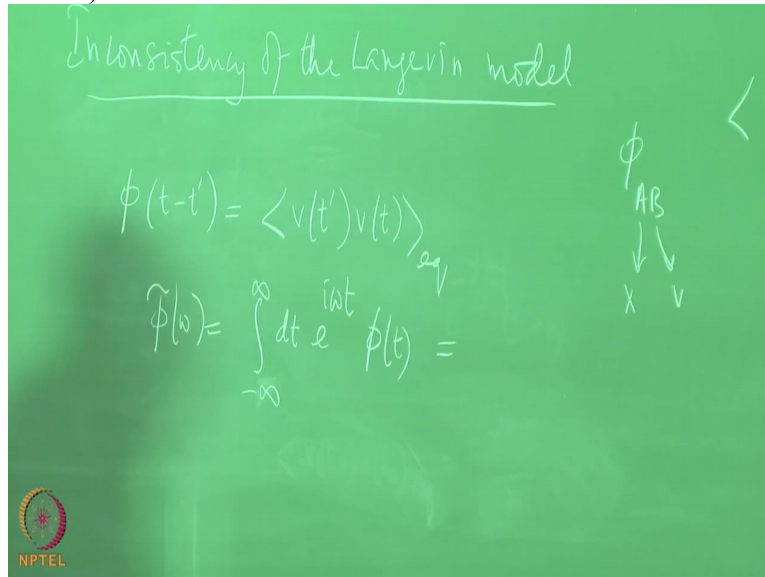 )
Inconsistency of the Langevin model
<
ϕ(t-t') = <v(t')v(t)>eq
ϕ AB
↓ ↘
X v
ϕ̃(ω) = ∫_{-∞}^{∞} dt e^{iωt} ϕ(t) =
NPTEL